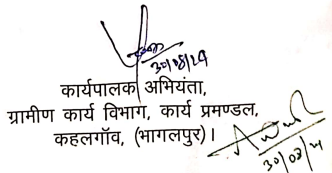 30/08/24
कार्यपालक अभियंता,
ग्रामीण कार्य विभाग, कार्य प्रमण्डल,
कहलगॉव, (भागलपुर)।